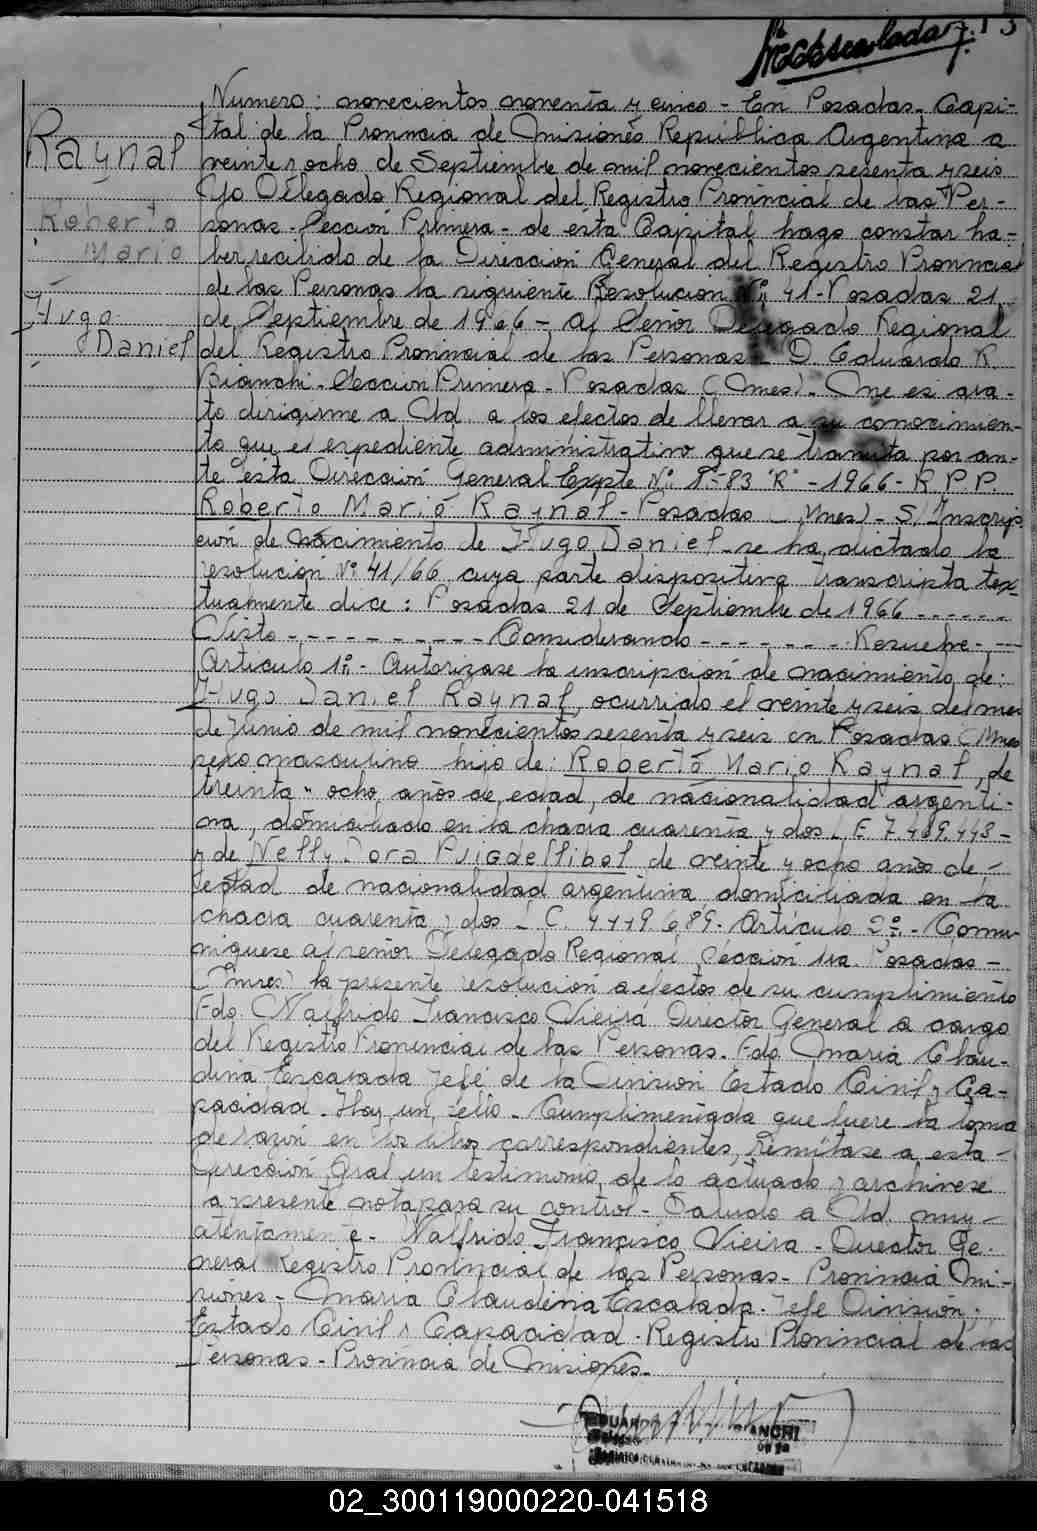 Raynal
Roberto
Mario
Hugo
Daniel
Numero: novecientos noventa y cinco - En Posadas - Capi-
tal de la Provincia de Misiones República Argentina a
veinte y ocho de Septiembre de mil novecientos sesenta y seis
Yo Delegado Regional del Registro Provincial de las Per-
sonas - Sección Primera - de ésta Capital hago constar ha-
ber recibido de la Dirección General del Registro Provincial
de las Personas la siguiente Resolución Nº 41 - Posadas 21
de Septiembre de 1966 - Al Señor Delegado Regional
del Registro Provincial de las Personas - D. Eduardo R.
Bianchi - Sección Primera - Posadas (Mnes) - Me es gra-
to dirigirme a Ud. a los efectos de llevar a su conocimien-
to que el expediente administrativo que se tramita por an-
te ésta Dirección General Expte Nº 83 "R" - 1966 - R.P.P.
Roberto Mario Raynal - Posadas (Mnes) - S/Inscrip
ción de nacimiento de Hugo Daniel - se ha dictado la
resolución Nº 41/66 cuya parte dispositiva transcripta tex-
tualmente dice: Posadas 21 de Septiembre de 1966 ------
Visto - - - - - - - - - - Considerando - - - - - - - Resuelve - ---
Artículo 1º - Autorizase la inscripción de nacimiento de:
Hugo Daniel Raynal, ocurrido el veinte y seis del mes
de Junio de mil novecientos sesenta y seis en Posadas (Mnes
sexo masculino hijo de: Roberto Mario Raynal, de
treinta y ocho años de edad, de nacionalidad argenti-
na, domiciliado en la chacra cuarenta y dos L.E. 7.
y de Nelly Dora Puigdellibol de veinte y ocho años de -
edad de nacionalidad argentina domiciliada en la
chacra cuarenta y dos L.C. 689. Artículo 2º - Comu-
niquese al señor Delegado Regional Sección 1ra. Posadas -
(Mnes) la presente resolución a efectos de su cumplimiento
Fdo. Nalfrido Francisco Vieira Director General a cargo
del Registro Provincial de las Personas. Fdo. Maria Clau-
dina Escalada Jefe de la Division Estado Civil y Ca-
pacidad - Hay un sello - Cumplimentada que fuere la toma
de razón en los libros correspondientes, remítase a esta -
Dirección Gral un testimonio de lo actuado y archivese
la presente nota para su control - Saludo a Ud. muy -
atentamente - Nalfrido Francisco Vieira - Director Ge-
neral Registro Provincial de las Personas - Provincia Mi-
siones - Maria Claudina Escalada - Jefe Division
Estado Civil y Capacidad - Registro Provincial de las
Personas - Provincia de Misiones -
EDUARDO BIANCHI
02_300119000220-041518